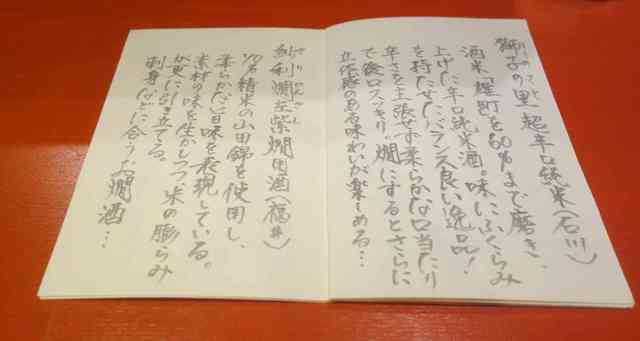 獅子の里 超辛口純米(石川)
酒米「雄町」を60%まで磨き、
上げた辛口純米酒。味にふくらみ
を持たせたバランス良い逸品!
辛さを主張せず柔らかな口当たり
で後口スッキリ。燗にするとさらに
立体感のある味わいが楽しめる…
燗左紫燗用酒(福井)
70%精米の山田錦を使用し、
柔らかな旨味を表現している。
素材の味を生かしつつ米の膨らみ
が更に引き立てる。
刺身などに合うお燗酒…